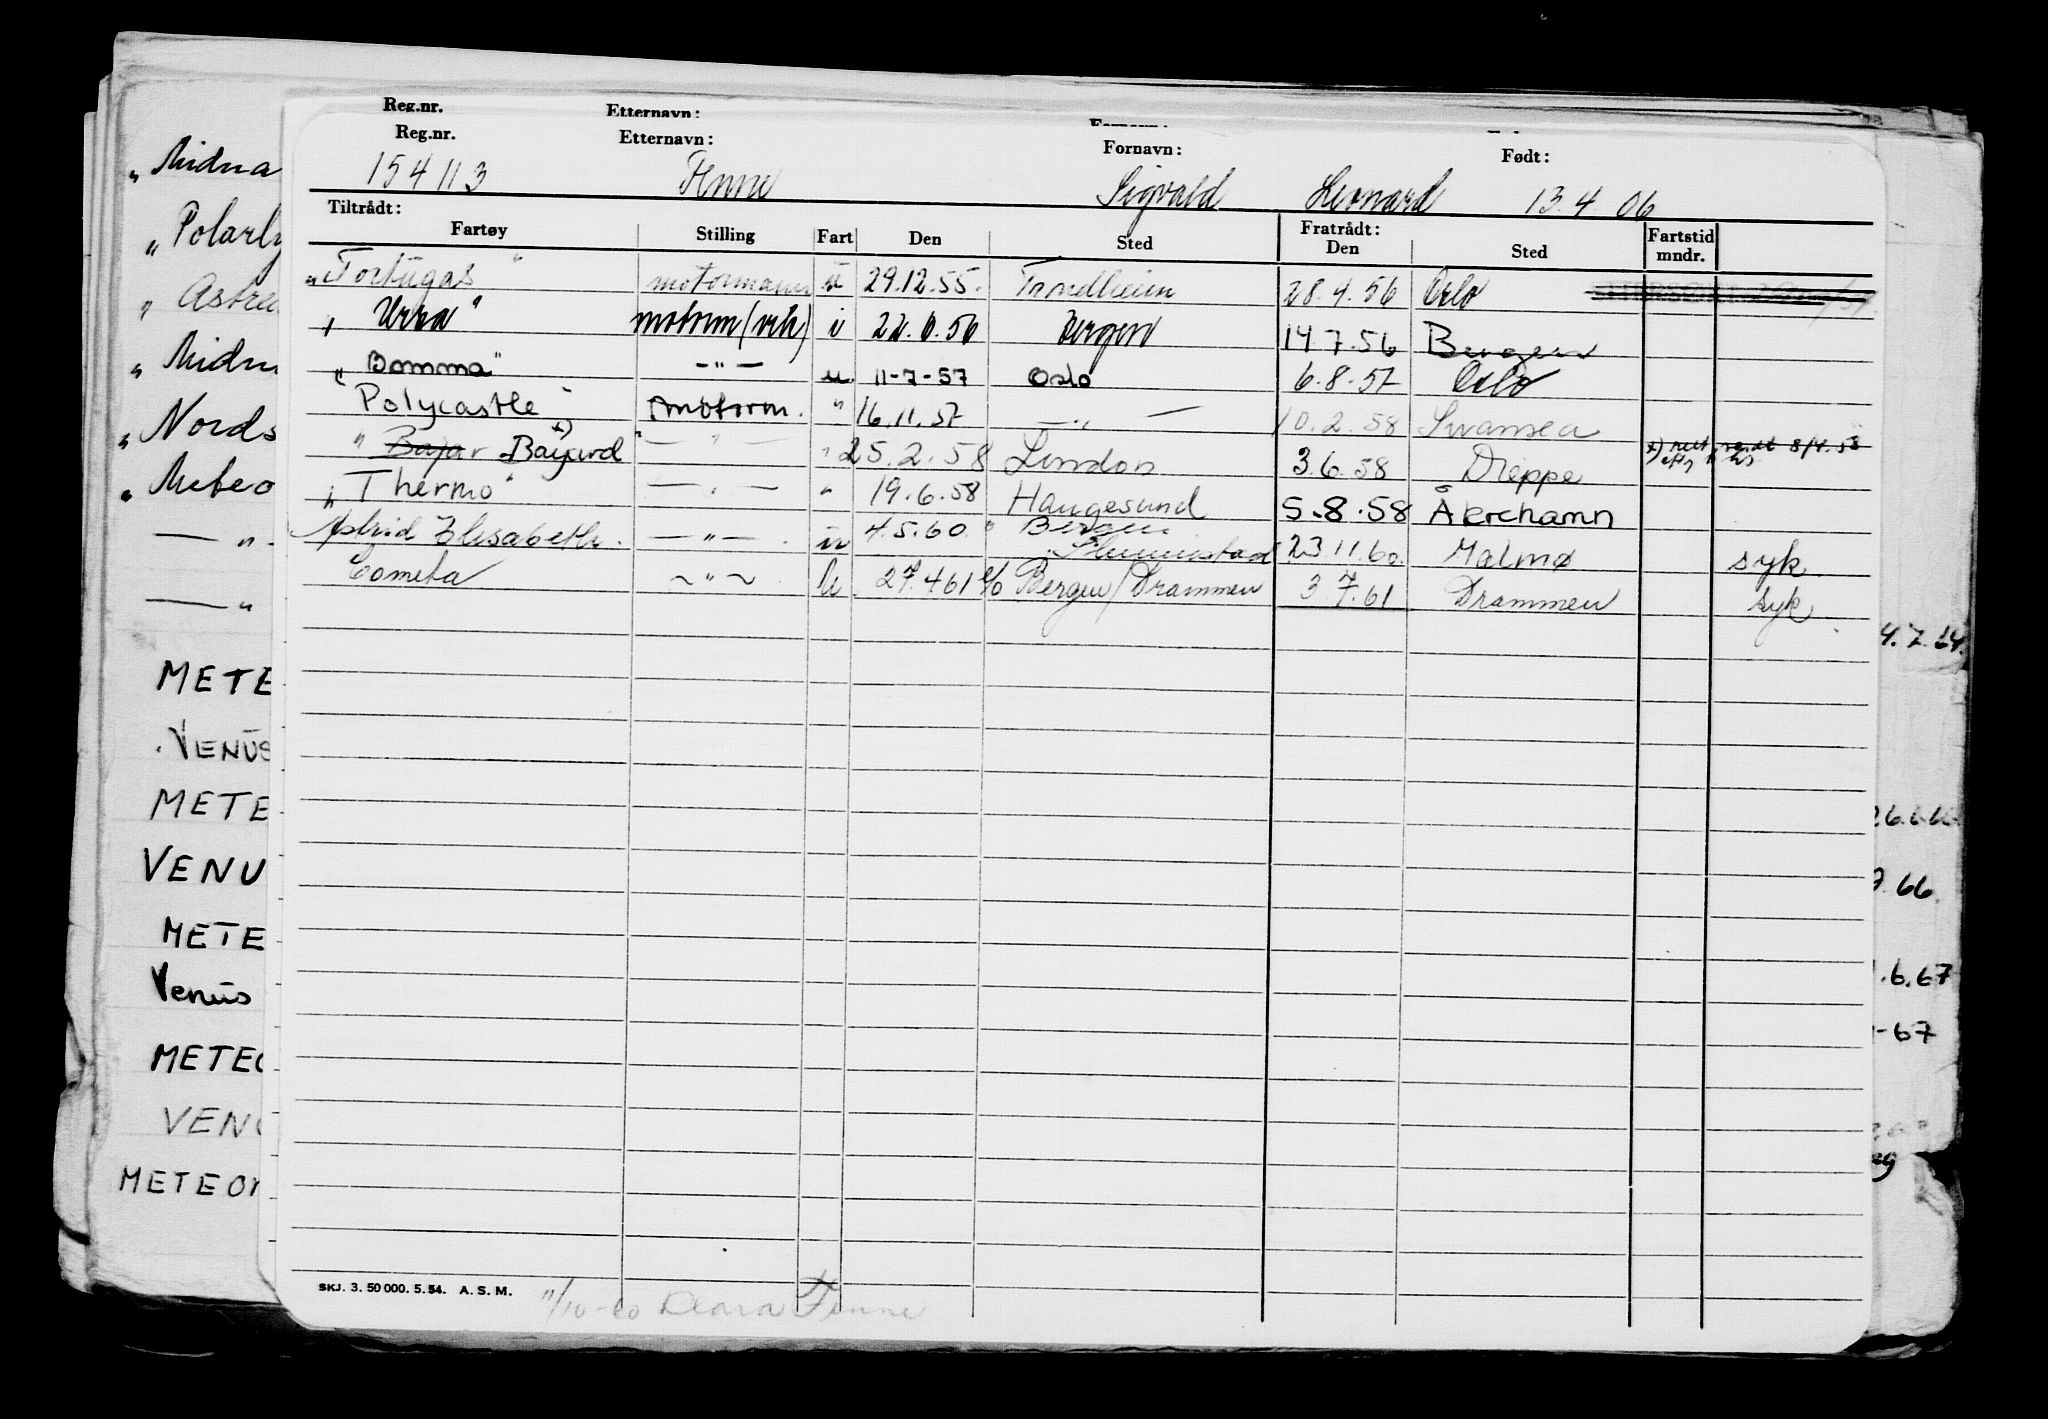 Reg.nr. Etternavn:
Reg.nr. Etternavn: Fornavn: Født:
154113 Finne Sigvald Leonard 13.4 06
Tiltrådt: Fratrådt:
Fartøy Stilling Fart Den Sted Den Sted Fartstid mndr.
"Tortugas" motormann u 29.12.55. Trondheim 28.4.56 Oslo
" Urra" motorm (vik) i 22.6.56 Bergen 14.7.56 Bergen
" Bomma" —"— u 11-7-57 Oslo 6.8.57 Oslo
Polycastle motorm. " 16.11.57 —"— 10.2.58 Swansea
" Bajar Bayard x) —"— " 25.2.58 London 3.6.58 Dieppe x) 8/4.58
" Thermo" —"— " 19.6.58 Haugesund 5.8.58 Åkrehamn
Astrid Elisabeth. —"— u 4.5.60. Bergen 23.11.60. Malmø syk
Cometa ~"~ u 27.4 61 Bergen/Drammen 3.7.61 Drammen syk
SKJ. 3. 50 000. 5. 54. A. S. M.
11/10-60 Klara Finne
" Midna
" Polarly
" Astrea
" Midn
" Nords
" Meteo
— " -
— "
METE
VENUS
METE
VENU
METE
Venus
METEO
VENU
METEOR
4.7.64.
26.6.66
7.66.
.6.67
-67